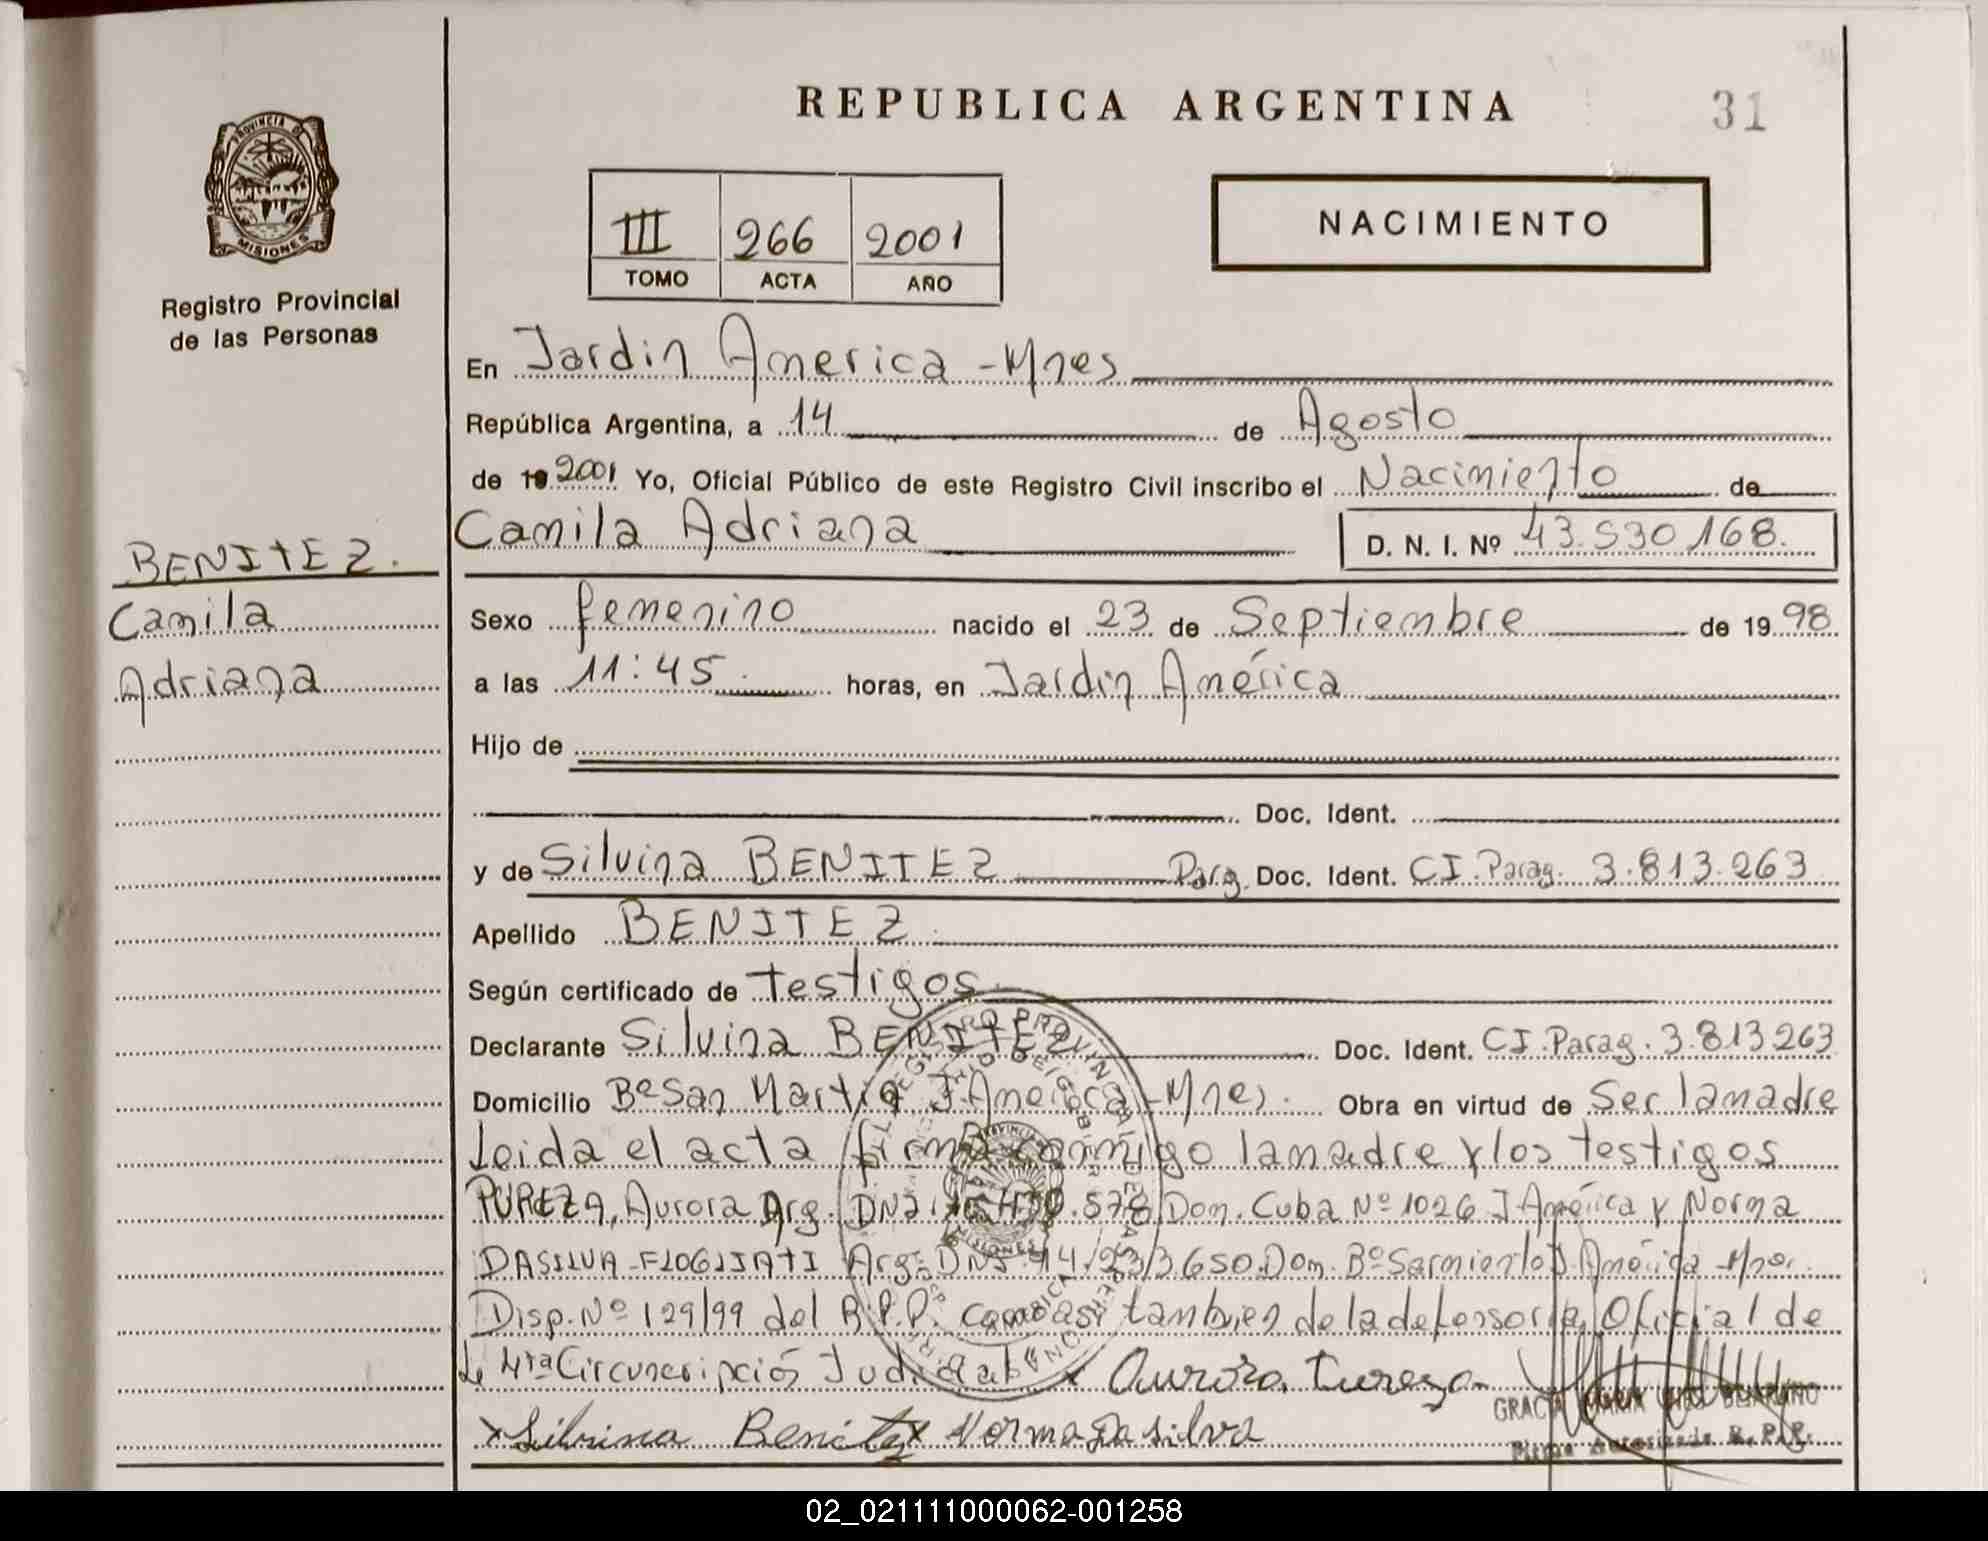 REPUBLICA ARGENTINA
31
PROVINCIA D
MISIONES
Registro Provincial
de las Personas
III 266 2001
TOMO ACTA AÑO
NACIMIENTO
En Jardin America - Mnes
República Argentina, a 14 de Agosto
de 19 2001 Yo, Oficial Público de este Registro Civil inscribo el Nacimiento de
Camila Adriana D. N. I. Nº 43.530.168.
BENITEZ.
Camila
Adriana
Sexo femenino nacido el 23 de Septiembre de 19 98
a las 11:45. horas, en Jardin América
Hijo de
Doc. Ident.
y de Silvina BENITEZ Parg. Doc. Ident. CI. Parag. 3.813.263
Apellido BENITEZ
Según certificado de testigos
Declarante Silvina BENITEZ Doc. Ident. CI. Parag. 3.813263
Domicilio Bº San Martin J. America - Mnes. Obra en virtud de Ser la madre
Leida el acta firma conmigo la madre y los testigos
PUREZA, Aurora Arg. DNI .578 Dom. Cuba Nº 1026 J América y Norma
DASILVA - Arg. DNI 3.650. Dom. Bº Sarmiento J América Mnes.
Disp. Nº 129/99 del R.P.P. tambien de la defensoria Oficial de
4ta Circunscripción Judicial x Aurora Pureza
x Silvina Benitez x Norma Da silva
GRACIA MARIA
Firma Autorizada R.P.P.
02_021111000062-001258